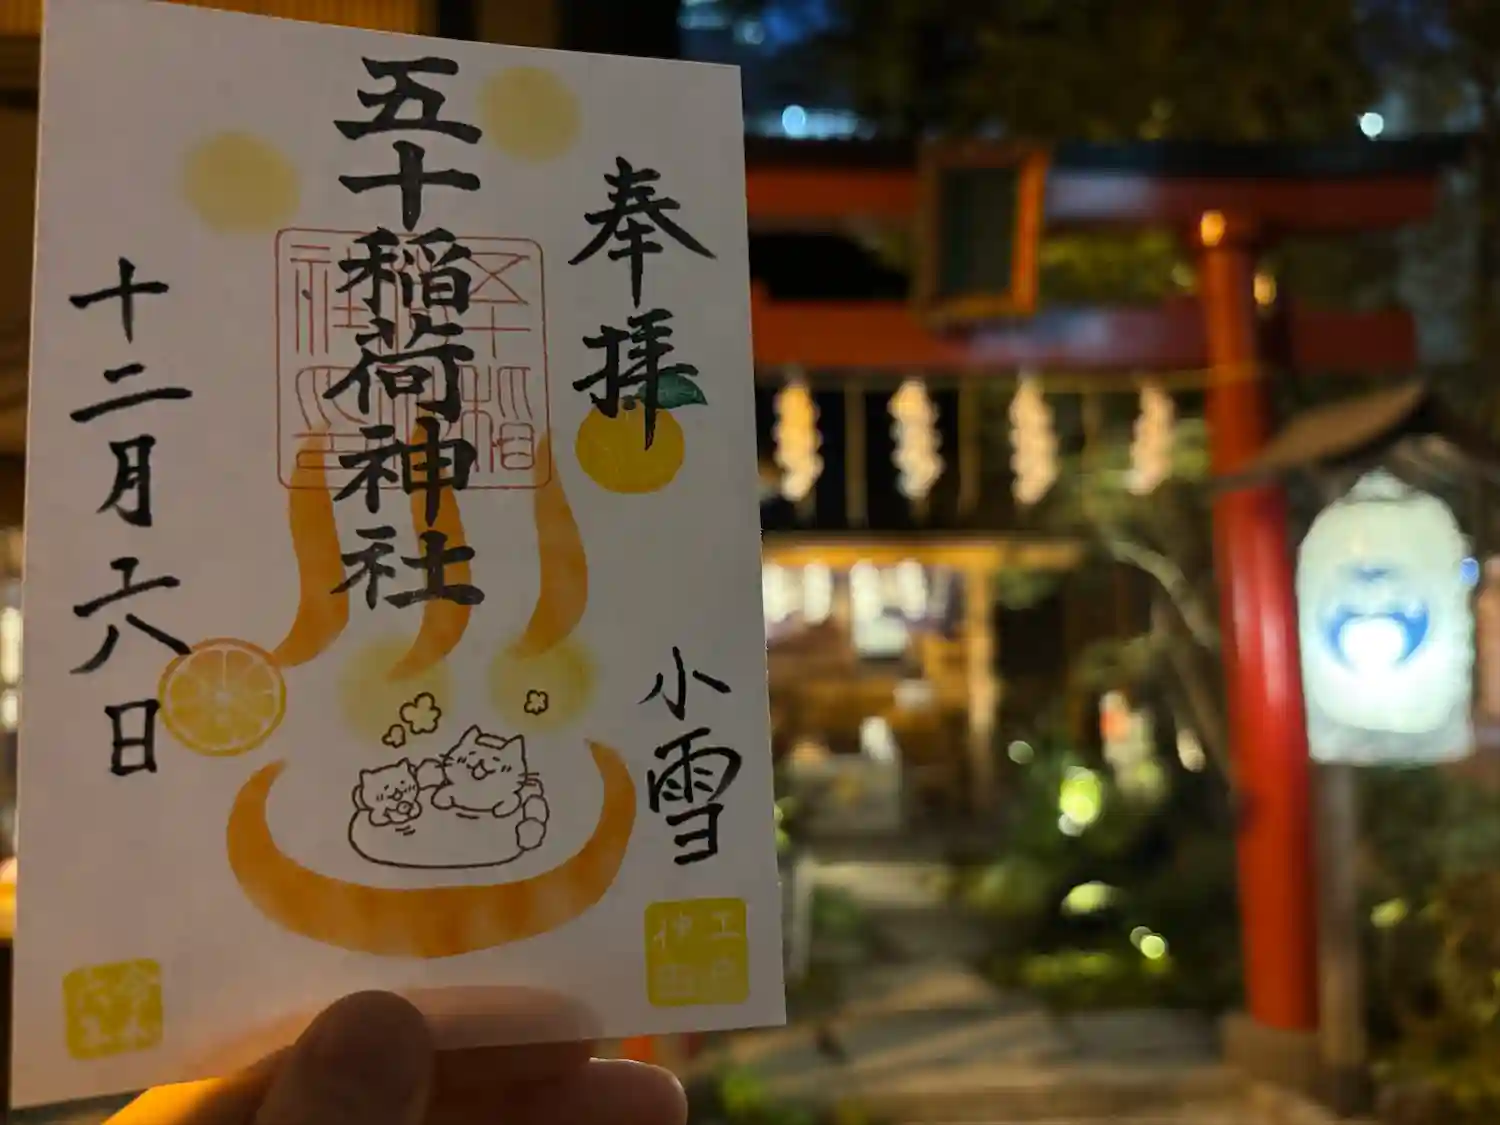 奉拝
小雪
五十稲荷神社
十二月六日